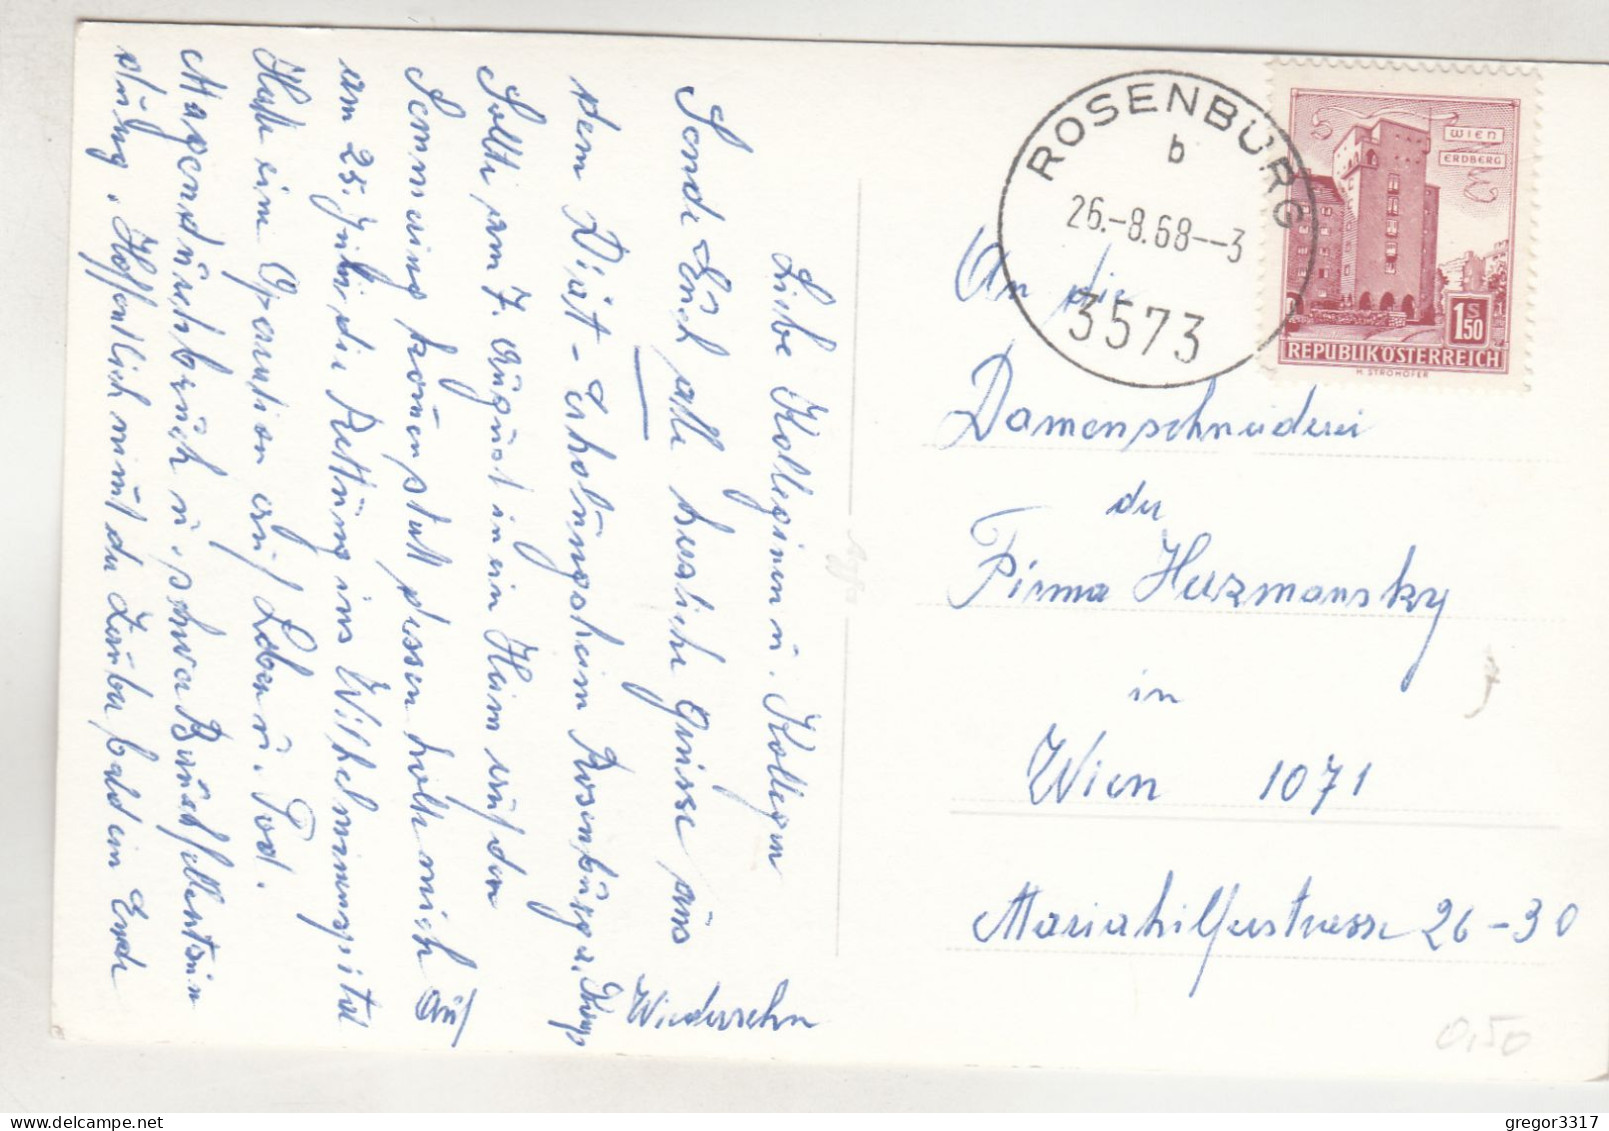 Liebe Kolleginen u. Kollegen
Sende Euch alle herzliche Grüsse aus
dem Diät-Erholungsheim Rosenburg a. Kamp
Sollte am 7. August in ein Heim auf den
Semmering kommen statt dessen holte mich
am 25. Juli die Rettung ins Wilhelminenspital
Hatte eine Operation auf Leben u. Tod.
Magendurchbruch u. schwere Bauchfellentzün
dung. Hoffentlich nimmt der Zauber bald ein Ende
Auf
Wiedersehn
ROSENBURG
b
26.-8.68--3
3573
WIEN
ERDBERG
S
1.50
REPUBLIK ÖSTERREICH
H. STROHOFER
An die
Damenschneiderei
der
Firma Herzmansky
in
Wien 1071
Mariahilferstrasse 26-30
0,50
gregor3317